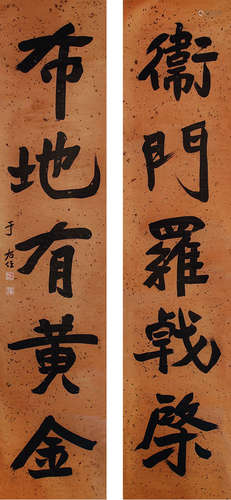 衞門羅戟棨
布地有黃金
于右任